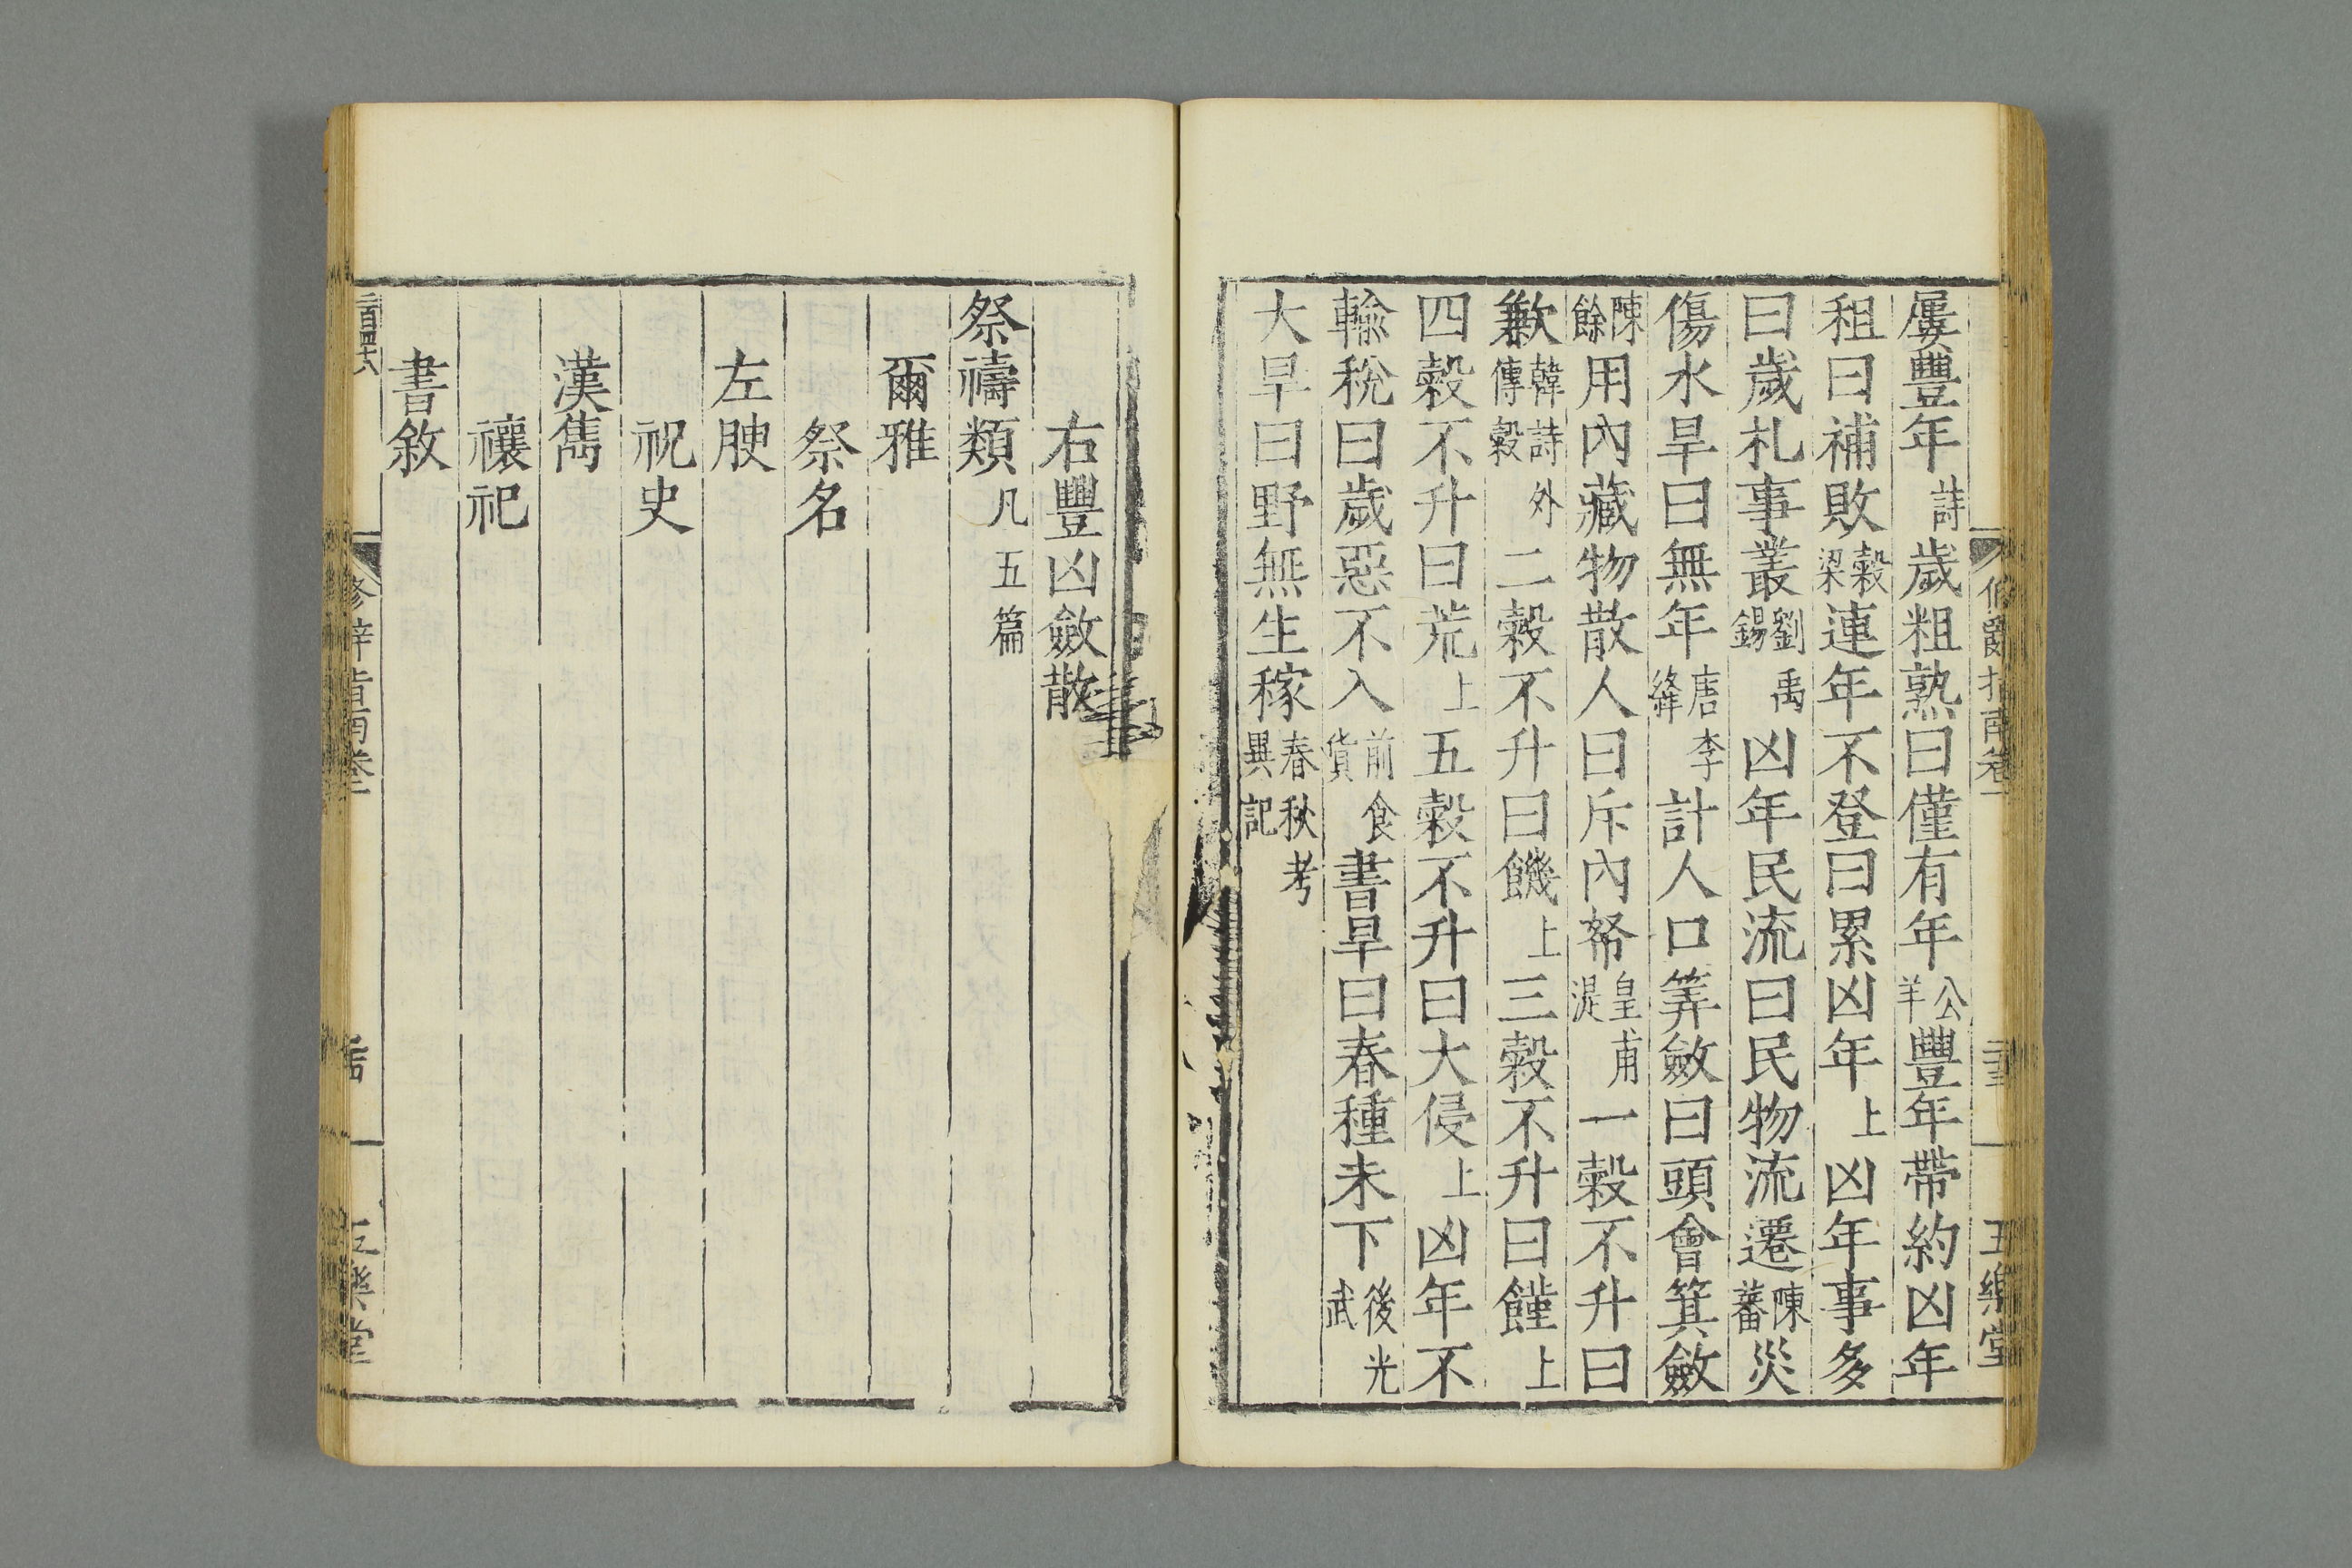 屢豐年詩歲粗熟曰僅有年公羊豐年帶約凶年
租曰補敗穀梁連年不登曰累凶年上凶年事多
曰歲札事叢劉禹錫凶年民流曰民物流遷陳蕃災
傷水旱曰無年唐李絳計人口筭斂曰頭會箕斂
陳餘用內藏物散人曰斥內帑皇甫湜一穀不升曰
歉韓詩外傳穀二穀不升曰饑上三穀不升曰饉上
四穀不升曰荒上五穀不升曰大侵上凶年不
輸稅曰歲惡不入前食貨書旱曰春種未下後光武
大旱曰野無生稼春秋考異記
右豐凶斂散
祭禱類凡五篇
爾雅
祭名
左腴
祝史
漢雋
禳祀
書敘
修辭指南卷二
五樂堂